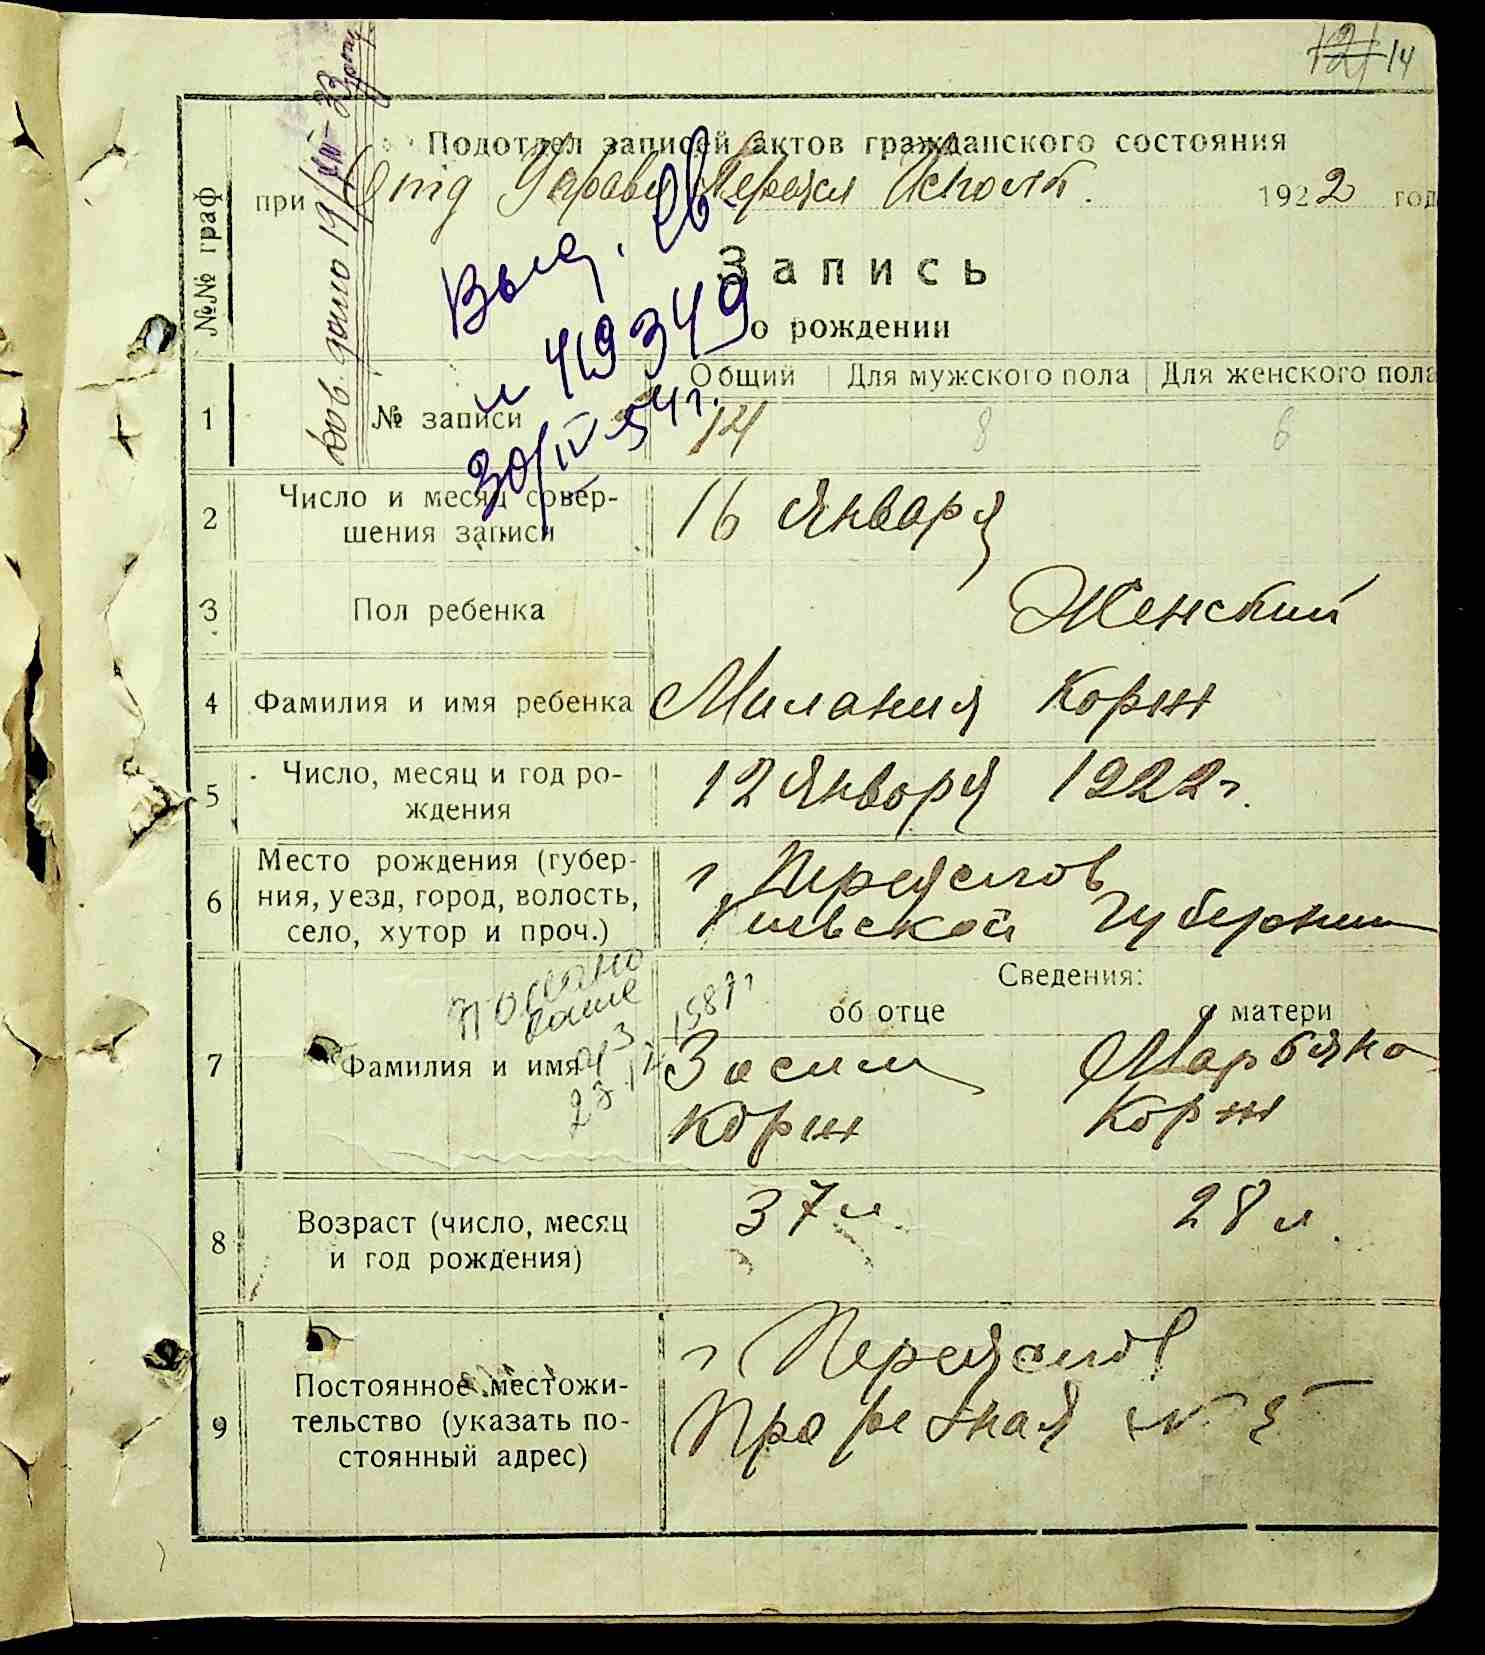 14
Подотдел записей актов гражданского состояния
при Отд Управ Переясл Исполк. 1922 год
Запись
о рождении
№№ граф
Выд. св.
419349
30/IV-54 г.
Общий Для мужского пола Для женского пола
1 № записи 14 8 6
2 Число и месяц совер-
шения записи 16 января
3 Пол ребенка Женский
4 Фамилия и имя ребенка Милания Корж
5 Число, месяц и год ро-
ждения 12 января 1922 г.
6 Место рождения (губер-
ния, уезд, город, волость,
село, хутор и проч.)
г Переяслов
Киевской Губернии
Сведения:
об отце о матери
7 Фамилия и имя
Зосим Марьяна
Корж Корж
8 Возраст (число, месяц
и год рождения)
37 л 28 л.
9 Постоянное местожи-
тельство (указать по-
стоянный адрес)
г Переяслов
Прорезная № 5